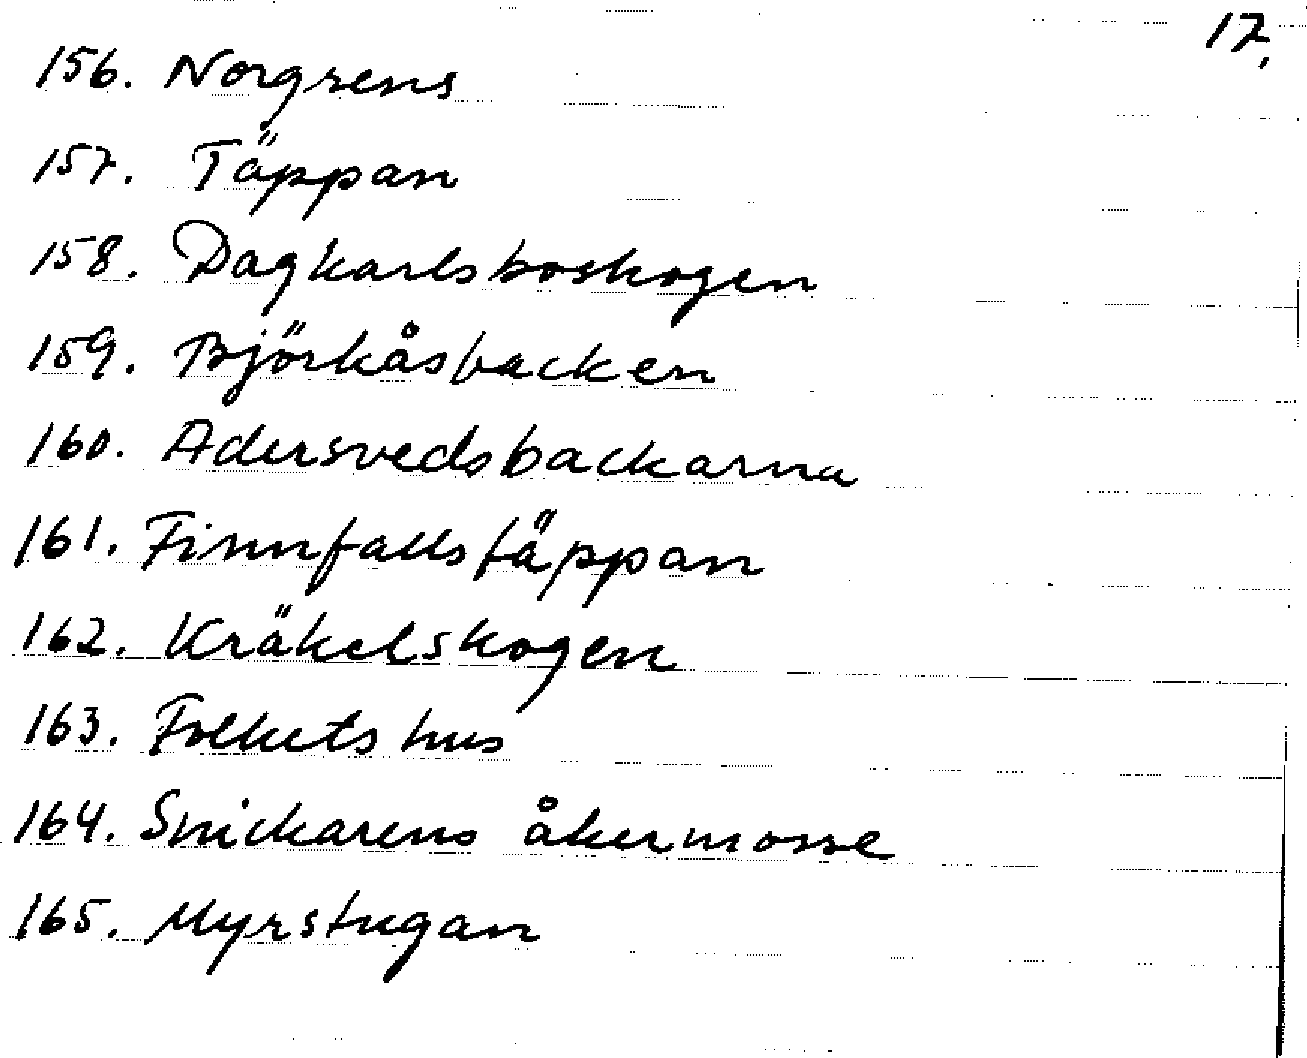 17.
156. Norgrens
157. Täppan
158. Dagkarlsboskogen
159. Björkåsbacken
160. Adersvedsbackarna
161. Finnfallstäppan
162. Kräkelskogen
163. Folkets hus
164. Snickarens åkermosse
165. Myrstugan